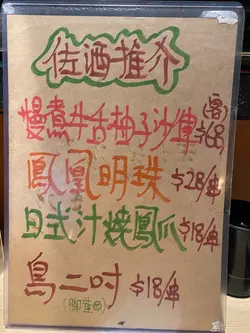 佐酒推介
慢煮牛舌柚子沙律 $68
鳳凰明珠 $28/串
日式汁燒鳳爪 $18/串
鳥二吋 $18/串